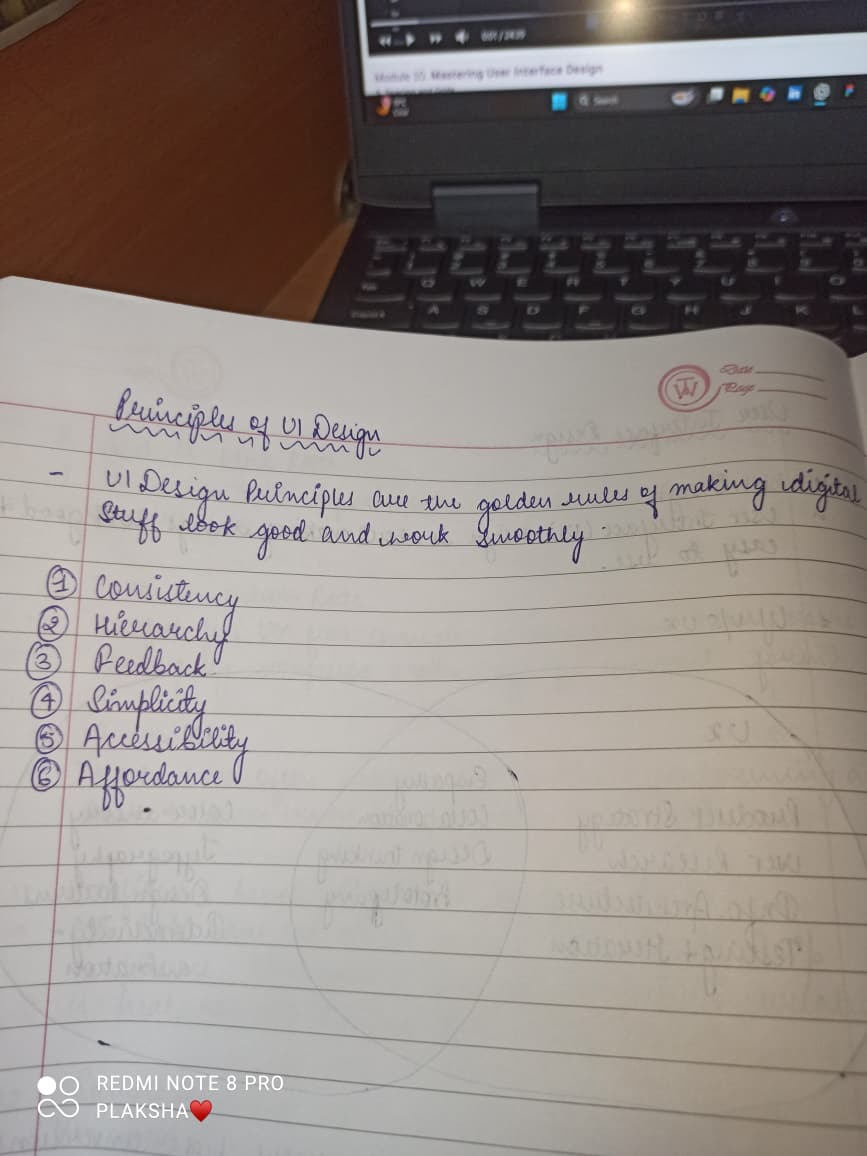 0:01 / 24:39
Module 10: Mastering User Interface Design
Search
Q W E R T Y U I O
A S D F G H J K L
Date
Page
Principles of UI Design
- UI Design Principles are the golden rules of making digital
stuff look good and work smoothly.
1 Consistency
2 Hierarchy
3 Feedback
4 Simplicity
5 Accessibility
6 Affordance
REDMI NOTE 8 PRO
PLAKSHA❤️